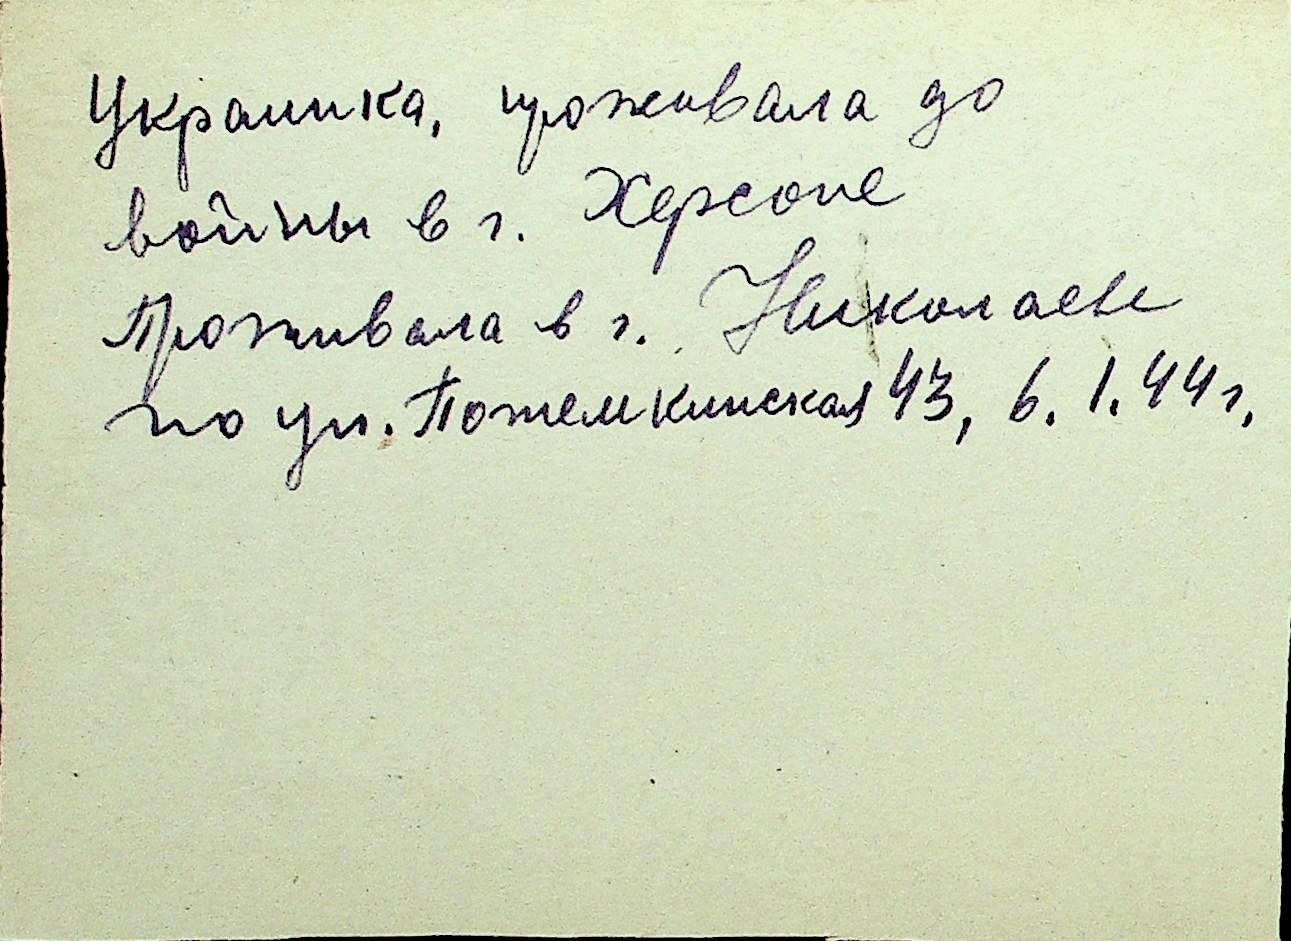 Украинка, проживала до
войны в г. Херсоне
Проживала в г. Николаеве
по ул. Потемкинская 43, 6.1.44г.